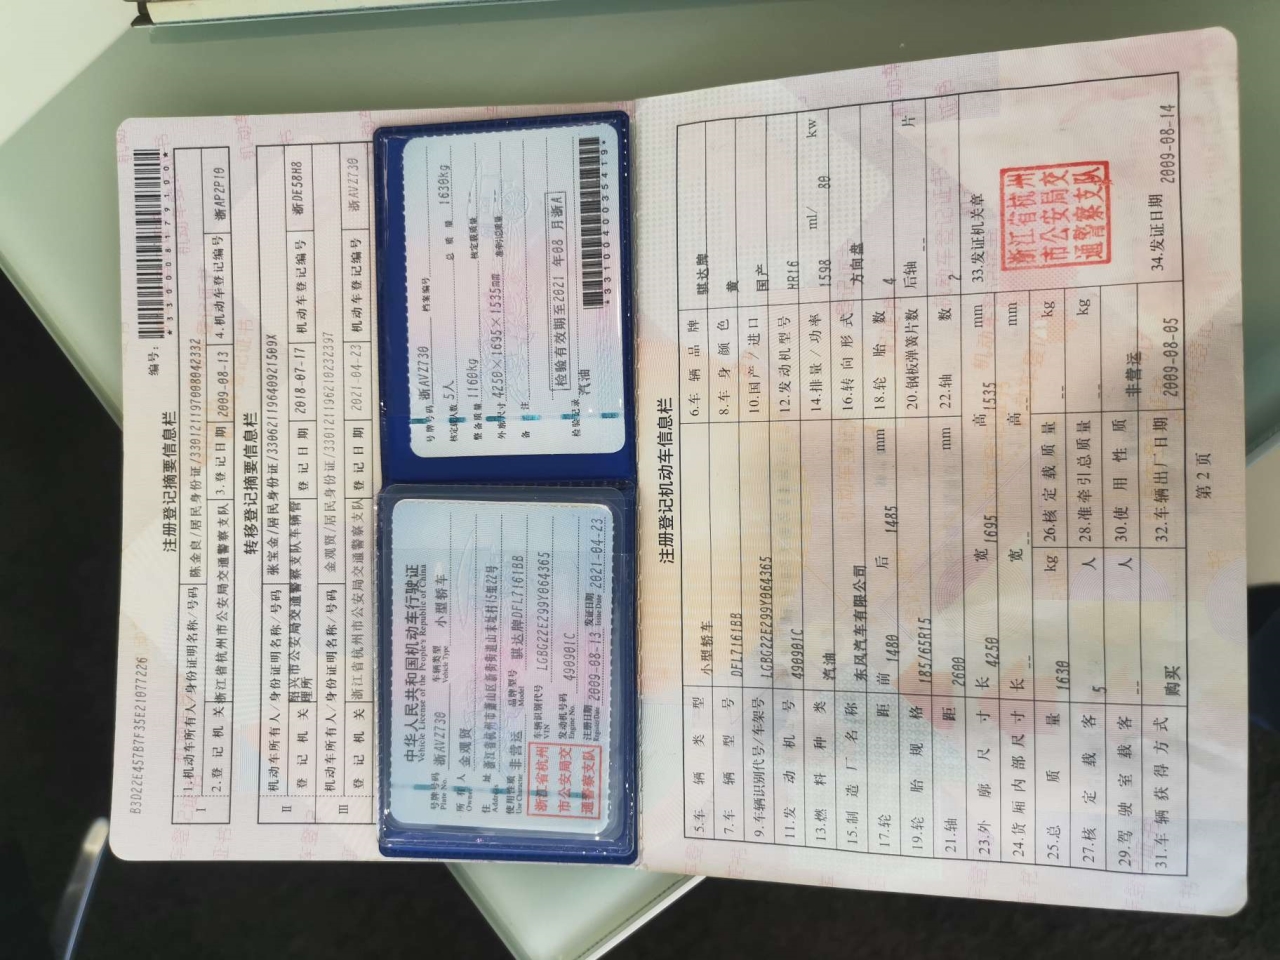 B3D22E457B7F35E21077226
编号：
*330008179100*
注册登记摘要信息栏
Ⅰ 1.机动车所有人/身份证明名称/号码 陈金良/居民身份证/330121197008042332
2.登记机关 浙江省杭州市公安局交通警察支队 3.登记日期 2009-08-13 4.机动车登记编号 浙AP2P10
转移登记摘要信息栏
Ⅱ 机动车所有人/身份证明名称/号码 张宝金/居民身份证/33062119640921509X
登记机关 绍兴市公安局交通警察支队车辆管理所 登记日期 2018-07-17 机动车登记编号 浙DE58H8
Ⅲ 机动车所有人/身份证明名称/号码 金观贤/居民身份证/330121196210232397
登记机关 浙江省杭州市公安局交通警察支队 登记日期 2021-04-23 机动车登记编号 浙AVZ730
中华人民共和国机动车行驶证
Vehicle License of the People's Republic of China
号牌号码 浙AVZ730 车辆类型 小型轿车
Plate No. Vehicle Type
所有人 金观贤
Owner
住址 浙江省杭州市萧山区新街街道山末址村15组22号
Address
使用性质 非营运 品牌型号 骐达牌DFL7161BB
Use Character Model
浙江省杭州市公安局交通警察支队
车辆识别代号 LGBG22E299Y064365
VIN
发动机号码 490901C
Engine No.
注册日期 2009-08-13 发证日期 2021-04-23
Register Date Issue Date
号牌号码 浙AVZ730 档案编号
核定载人数 5人 总质量 1630kg
整备质量 1160kg 核定载质量 --
外廓尺寸 4250×1695×1535mm 准牵引总质量 --
备注
检验有效期至2021年08月浙A
检验记录 汽油
*3310400354419*
注册登记机动车信息栏
5.车辆类型 小型轿车 6.车辆品牌 骐达牌
7.车辆型号 DFL7161BB 8.车身颜色 黄
9.车辆识别代号/车架号 LGBG22E299Y064365 10.国产/进口 国产
11.发动机号 490901C 12.发动机型号 HR16
13.燃料种类 汽油 14.排量/功率 1598 ml/ 80 kw
15.制造厂名称 东风汽车有限公司 16.转向形式 方向盘
17.轮距 前 1480 后 1485 mm 18.轮胎数 4
19.轮胎规格 185/65R15 20.钢板弹簧片数 后轴 -- 片
21.轴距 2600 mm 22.轴数 2
23.外廓尺寸 长 4250 宽 1695 高 1535 mm 33.发证机关章
24.货厢内部尺寸 长 -- 宽 -- 高 -- mm
浙江省杭州市公安局交通警察支队
25.总质量 1630 kg 26.核定载质量 -- kg
27.核定载客 5 人 28.准牵引总质量 -- kg
29.驾驶室载客 -- 人 30.使用性质 非营运
31.车辆获得方式 购买 32.车辆出厂日期 2009-08-05 34.发证日期 2009-08-14
第2页